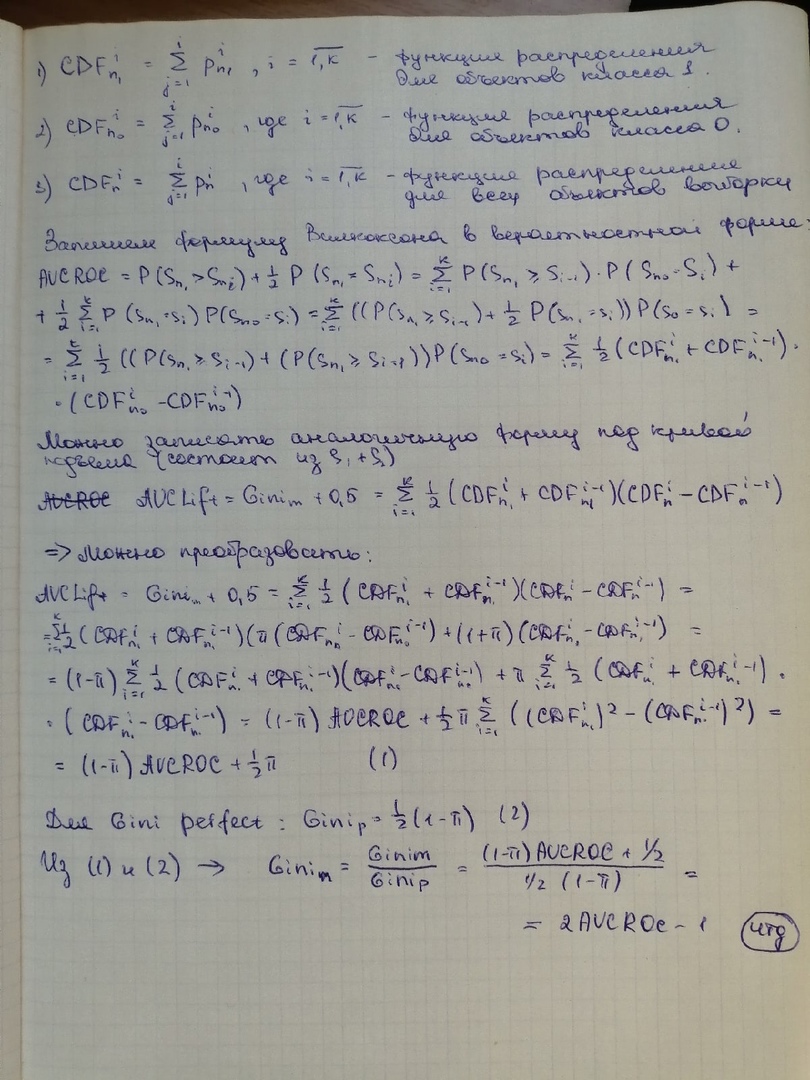 1) CDF_{n_1}^i = \sum_{j=1}^{i} p_{n_1}^i , i = \overline{1,K} - функция распределения
для объектов класса 1.
2) CDF_{n_0}^i = \sum_{j=1}^{i} p_{n_0}^i , где i = \overline{1,K} - функция распределения
для объектов класса 0.
3) CDF_n^i = \sum_{j=1}^{i} p_n^i , где i = \overline{1,K} - функция распределения
для всех объектов выборки
Запишем формулу Вилкоксона в вероятностной форме:
AUCROC = P(S_{n_1} > S_{n_i}) + \frac{1}{2} P(S_{n_1} = S_{n_i}) = \sum_{i=1}^{K} P(S_{n_1} ≥ S_{i-1}) · P(S_{n_0} = S_i) +
+ \frac{1}{2} \sum_{i=1}^{K} P(S_{n_1} = S_i) P(S_{n_0} = S_i) = \sum_{i=1}^{K} ((P(S_{n_1} ≥ S_{i-1}) + \frac{1}{2} P(S_{n_1} = S_i)) P(S_0 = S_i) =
= \sum_{i=1}^{K} \frac{1}{2} ((P(S_{n_1} ≥ S_{i-1}) + (P(S_{n_1} ≥ S_{i-1})) P(S_{n_0} = S_i) = \sum_{i=1}^{K} \frac{1}{2} (CDF_{n_1}^i + CDF_{n_1}^{i-1}) ·
· (CDF_{n_0}^i - CDF_{n_0}^{i-1})
Можно записать аналогичную форму под кривой
подъема (состоит из S_1 + S_2)
AUCLift = Gini_m + 0,5 = \sum_{i=1}^{K} \frac{1}{2} (CDF_{n_1}^i + CDF_{n_1}^{i-1})(CDF_n^i - CDF_n^{i-1})
=> Можно преобразовать:
AUCLift = Gini_m + 0,5 = \sum_{i=1}^{K} \frac{1}{2} (CDF_{n_1}^i + CDF_{n_1}^{i-1})(CDF_n^i - CDF_n^{i-1}) =
= \sum_{i=1}^{K} \frac{1}{2} (CDF_{n_1}^i + CDF_{n_1}^{i-1}) (π (CDF_{n_0}^i - CDF_{n_0}^{i-1}) + (1+π) (CDF_{n_1}^i - CDF_{n_1}^{i-1}) =
= (1-π) \sum_{i=1}^{K} \frac{1}{2} (CDF_{n_1}^i + CDF_{n_1}^{i-1})(CDF_{n_0}^i - CDF_{n_0}^{i-1}) + π \sum_{i=1}^{K} \frac{1}{2} (CDF_{n_1}^i + CDF_{n_1}^{i-1}) ·
· (CDF_{n_1}^i - CDF_{n_1}^{i-1}) = (1-π) AUCROC + \frac{1}{2} π \sum_{i=1}^{K} ((CDF_{n_1}^i)^2 - (CDF_{n_1}^{i-1})^2) =
= (1-π) AUCROC + \frac{1}{2} π (1)
Для Gini perfect : Gini_p = \frac{1}{2} (1-π) (2)
Из (1) и (2) → Gini_m = \frac{Gini_m}{Gini_p} = \frac{(1-π) AUCROC + 1/2}{1/2 (1-π)} =
= 2AUCROC - 1 чтд